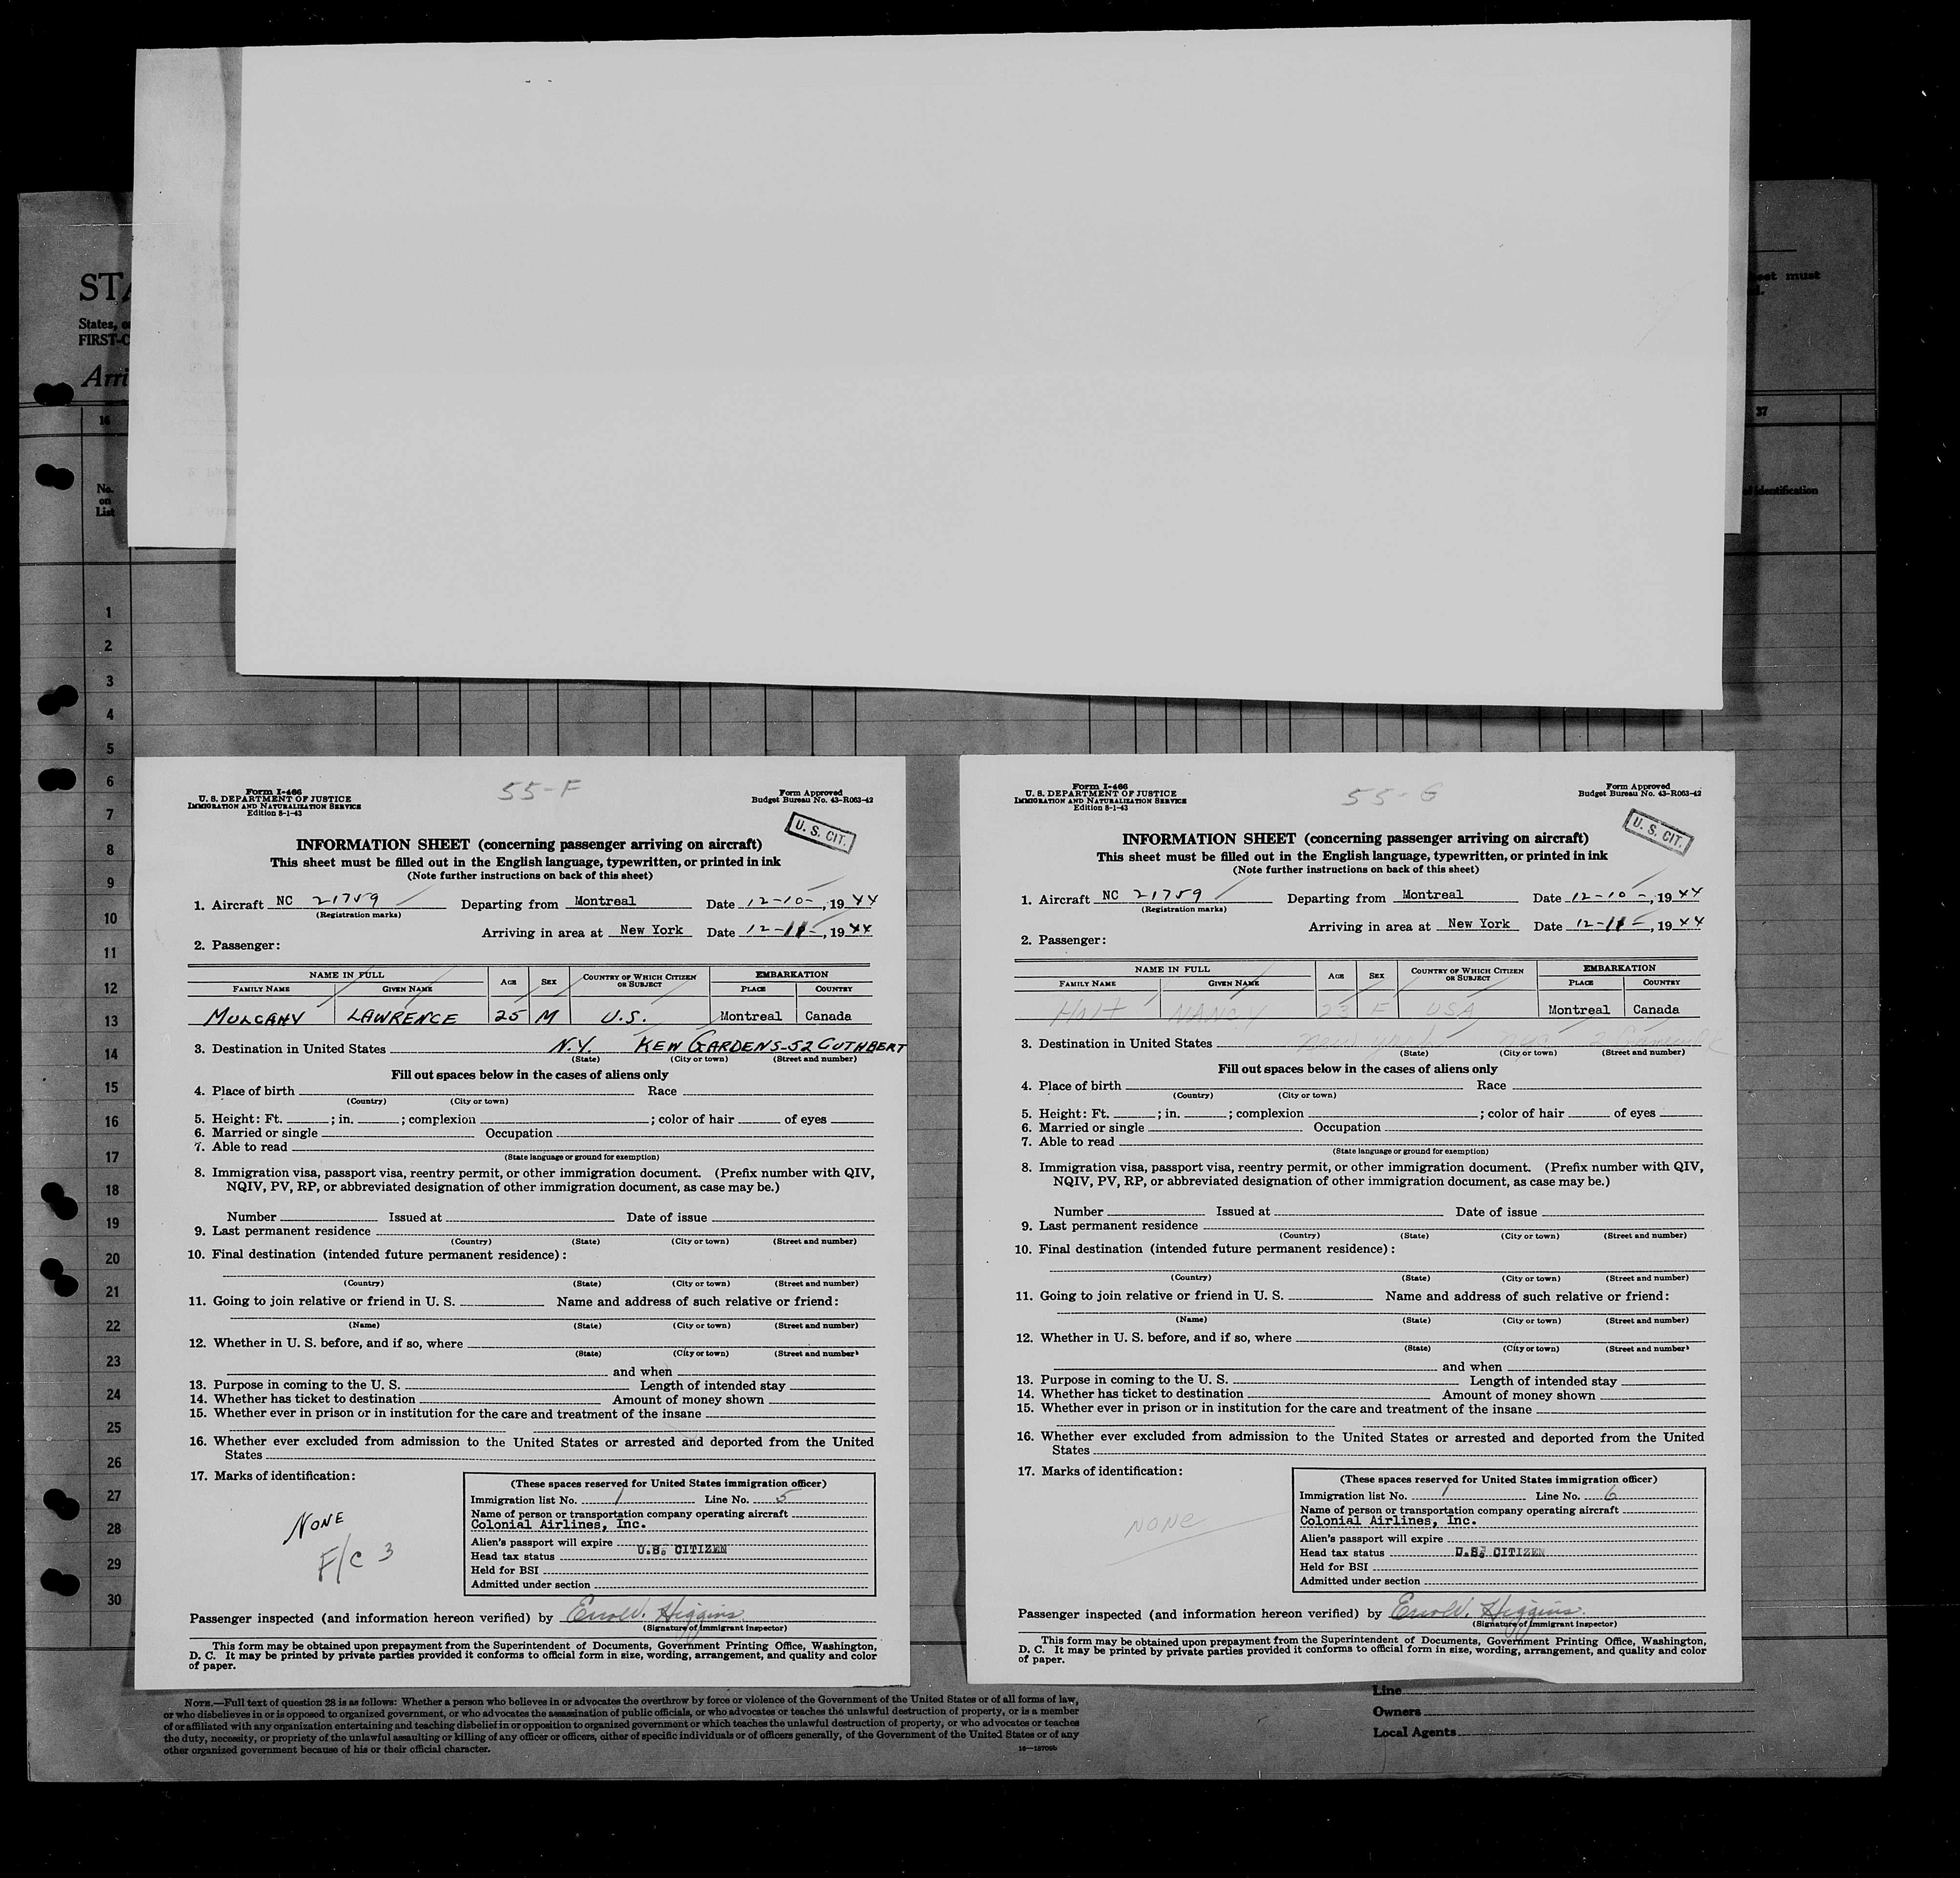 STA
States, o
FIRST-C
Arri
16
No.
on
List
eet must
d.
37
identification
1
2
3
4
5
6
7
8
9
10
11
12
13
14
15
16
17
18
19
20
21
22
23
24
25
26
27
28
29
30
Form I-466
U. S. DEPARTMENT OF JUSTICE
IMMIGRATION AND NATURALIZATION SERVICE
Edition 8-1-43
55-F
Form Approved
Budget Bureau No. 43-R063-42
U. S. CIT.
INFORMATION SHEET (concerning passenger arriving on aircraft)
This sheet must be filled out in the English language, typewritten, or printed in ink
(Note further instructions on back of this sheet)
1. Aircraft NC 21759 Departing from Montreal Date 12-10-, 1944
(Registration marks)
Arriving in area at New York Date 12-11-, 1944
2. Passenger:
NAME IN FULL AGE SEX COUNTRY OF WHICH CITIZEN OR SUBJECT EMBARKATION
FAMILY NAME GIVEN NAME PLACE COUNTRY
MULCAHY LAWRENCE 25 M U.S. Montreal Canada
3. Destination in United States N.Y. KEW GARDENS-52 CUTHBERT
(State) (City or town) (Street and number)
Fill out spaces below in the cases of aliens only
4. Place of birth Race
(Country) (City or town)
5. Height: Ft. ; in. ; complexion ; color of hair of eyes
6. Married or single Occupation
7. Able to read
(State language or ground for exemption)
8. Immigration visa, passport visa, reentry permit, or other immigration document. (Prefix number with QIV,
NQIV, PV, RP, or abbreviated designation of other immigration document, as case may be.)
Number Issued at Date of issue
9. Last permanent residence
(Country) (State) (City or town) (Street and number)
10. Final destination (intended future permanent residence):
(Country) (State) (City or town) (Street and number)
11. Going to join relative or friend in U. S. Name and address of such relative or friend:
(Name) (State) (City or town) (Street and number)
12. Whether in U. S. before, and if so, where
(State) (City or town) (Street and number)
and when
13. Purpose in coming to the U. S. Length of intended stay
14. Whether has ticket to destination Amount of money shown
15. Whether ever in prison or in institution for the care and treatment of the insane
16. Whether ever excluded from admission to the United States or arrested and deported from the United
States
17. Marks of identification:
NONE
F/C 3
(These spaces reserved for United States immigration officer)
Immigration list No. 1 Line No. 5
Name of person or transportation company operating aircraft
Colonial Airlines, Inc.
Alien's passport will expire
Head tax status U.S. CITIZEN
Held for BSI
Admitted under section
Passenger inspected (and information hereon verified) by Errol W. Higgins
(Signature of immigrant inspector)
This form may be obtained upon prepayment from the Superintendent of Documents, Government Printing Office, Washington,
D. C. It may be printed by private parties provided it conforms to official form in size, wording, arrangement, and quality and color
of paper.
Form I-466
U. S. DEPARTMENT OF JUSTICE
IMMIGRATION AND NATURALIZATION SERVICE
Edition 8-1-43
55-G
Form Approved
Budget Bureau No. 43-R063-42
U. S. CIT.
INFORMATION SHEET (concerning passenger arriving on aircraft)
This sheet must be filled out in the English language, typewritten, or printed in ink
(Note further instructions on back of this sheet)
1. Aircraft NC 21759 Departing from Montreal Date 12-10-, 1944
(Registration marks)
Arriving in area at New York Date 12-11-, 1944
2. Passenger:
NAME IN FULL AGE SEX COUNTRY OF WHICH CITIZEN OR SUBJECT EMBARKATION
FAMILY NAME GIVEN NAME PLACE COUNTRY
Holt NANCY 23 F USA Montreal Canada
3. Destination in United States New York
(State) (City or town) (Street and number)
Fill out spaces below in the cases of aliens only
4. Place of birth Race
(Country) (City or town)
5. Height: Ft. ; in. ; complexion ; color of hair of eyes
6. Married or single Occupation
7. Able to read
(State language or ground for exemption)
8. Immigration visa, passport visa, reentry permit, or other immigration document. (Prefix number with QIV,
NQIV, PV, RP, or abbreviated designation of other immigration document, as case may be.)
Number Issued at Date of issue
9. Last permanent residence
(Country) (State) (City or town) (Street and number)
10. Final destination (intended future permanent residence):
(Country) (State) (City or town) (Street and number)
11. Going to join relative or friend in U. S. Name and address of such relative or friend:
(Name) (State) (City or town) (Street and number)
12. Whether in U. S. before, and if so, where
(State) (City or town) (Street and number)
and when
13. Purpose in coming to the U. S. Length of intended stay
14. Whether has ticket to destination Amount of money shown
15. Whether ever in prison or in institution for the care and treatment of the insane
16. Whether ever excluded from admission to the United States or arrested and deported from the United
States
17. Marks of identification:
NONE
(These spaces reserved for United States immigration officer)
Immigration list No. 1 Line No. 6
Name of person or transportation company operating aircraft
Colonial Airlines, Inc.
Alien's passport will expire
Head tax status U.S. CITIZEN
Held for BSI
Admitted under section
Passenger inspected (and information hereon verified) by Errol W. Higgins
(Signature of immigrant inspector)
This form may be obtained upon prepayment from the Superintendent of Documents, Government Printing Office, Washington,
D. C. It may be printed by private parties provided it conforms to official form in size, wording, arrangement, and quality and color
of paper.
NOTE.—Full text of question 28 is as follows: Whether a person who believes in or advocates the overthrow by force or violence of the Government of the United States or of all forms of law,
or who disbelieves in or is opposed to organized government, or who advocates the assassination of public officials, or who advocates or teaches the unlawful destruction of property, or is a member
of or affiliated with any organization entertaining and teaching disbelief in or opposition to organized government or which teaches the unlawful destruction of property, or who advocates or teaches
the duty, necessity, or propriety of the unlawful assaulting or killing of any officer or officers, either of specific individuals or of officers generally, of the Government of the United States or of any
other organized government because of his or their official character.
Line
Owners
Local Agents